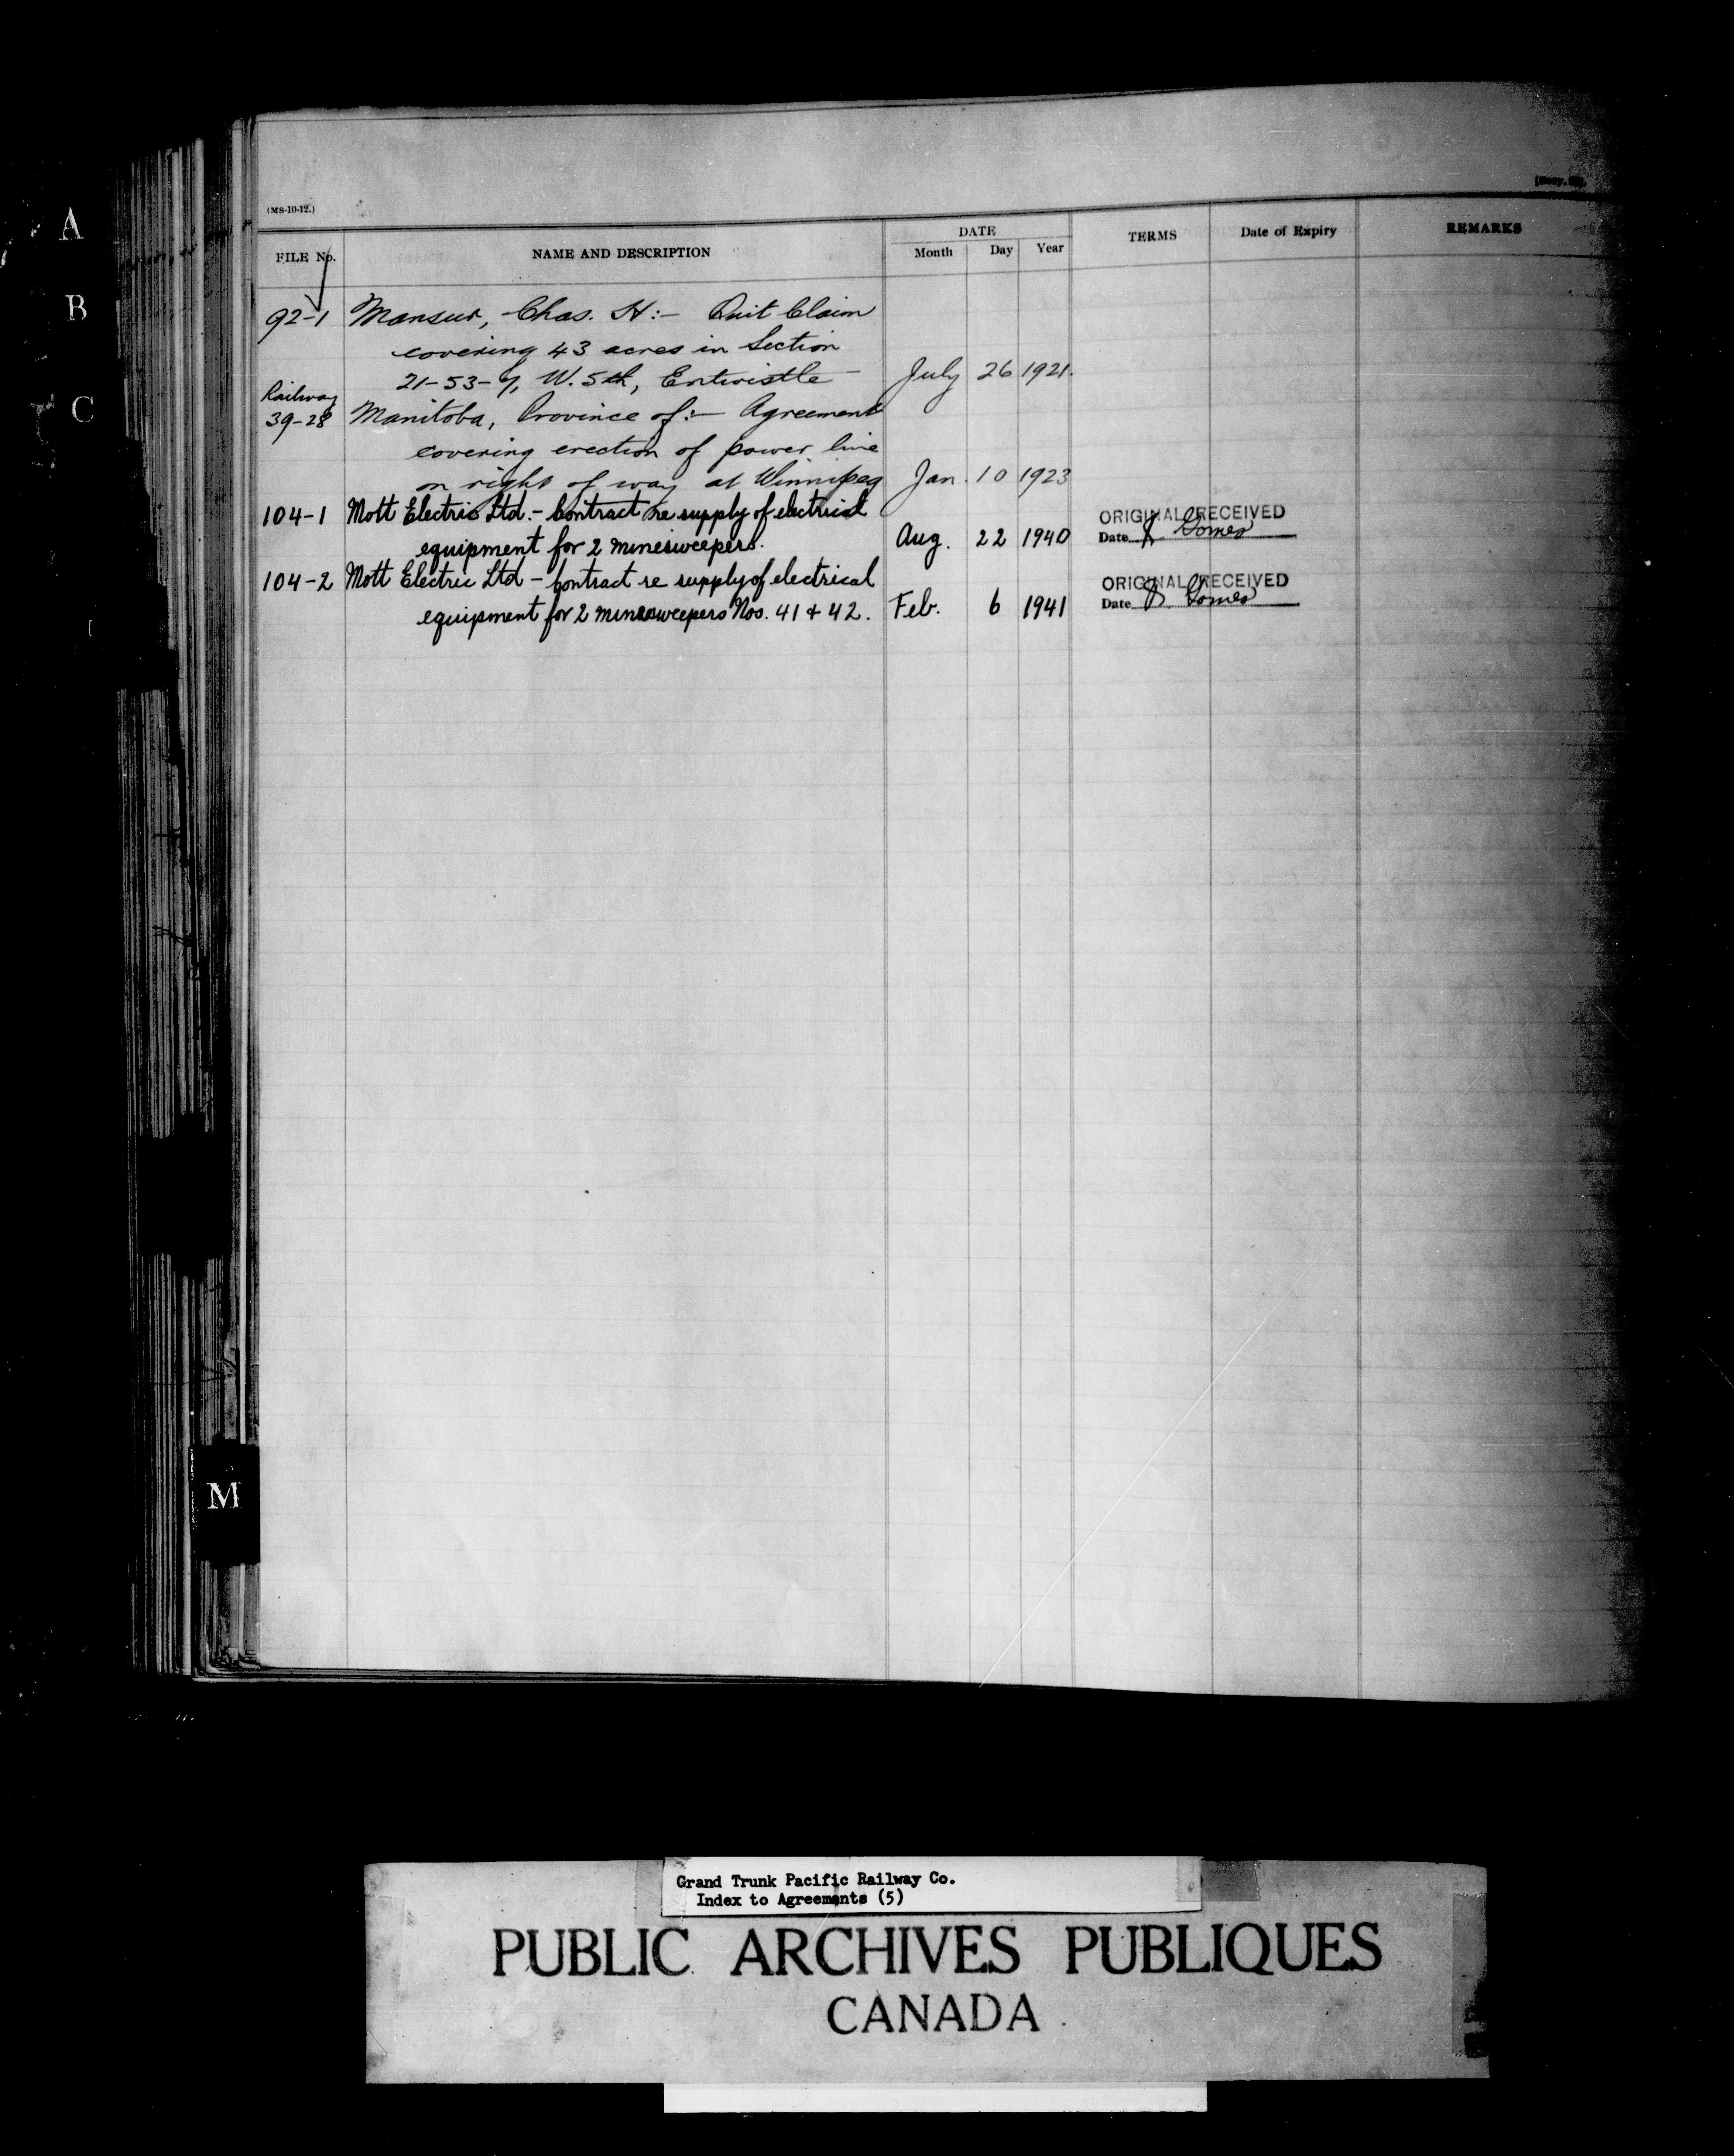 A
B
C
(MS-10-12.)
FILE No.
NAME AND DESCRIPTION
DATE
Month Day Year
TERMS
Date of Expiry
REMARKS
92-1 Mansur, Chas. H:- Quit Claim
covering 43 acres in Section
21-53-7, W. 5th, Entwistle July 26 1921.
Railway
39-28 Manitoba, Province of:- Agreement
covering erection of power line
on right of way at Winnipeg Jan. 10 1923
104-1 Mott Electric Ltd.- Contract re supply of electrical
equipment for 2 minesweepers. Aug. 22 1940
ORIGINAL RECEIVED
Date
104-2 Mott Electric Ltd - Contract re supply of electrical
equipment for 2 minesweepers Nos. 41 & 42. Feb. 6 1941
ORIGINAL RECEIVED
Date
M
Grand Trunk Pacific Railway Co.
Index to Agreements (5)
PUBLIC ARCHIVES PUBLIQUES
CANADA